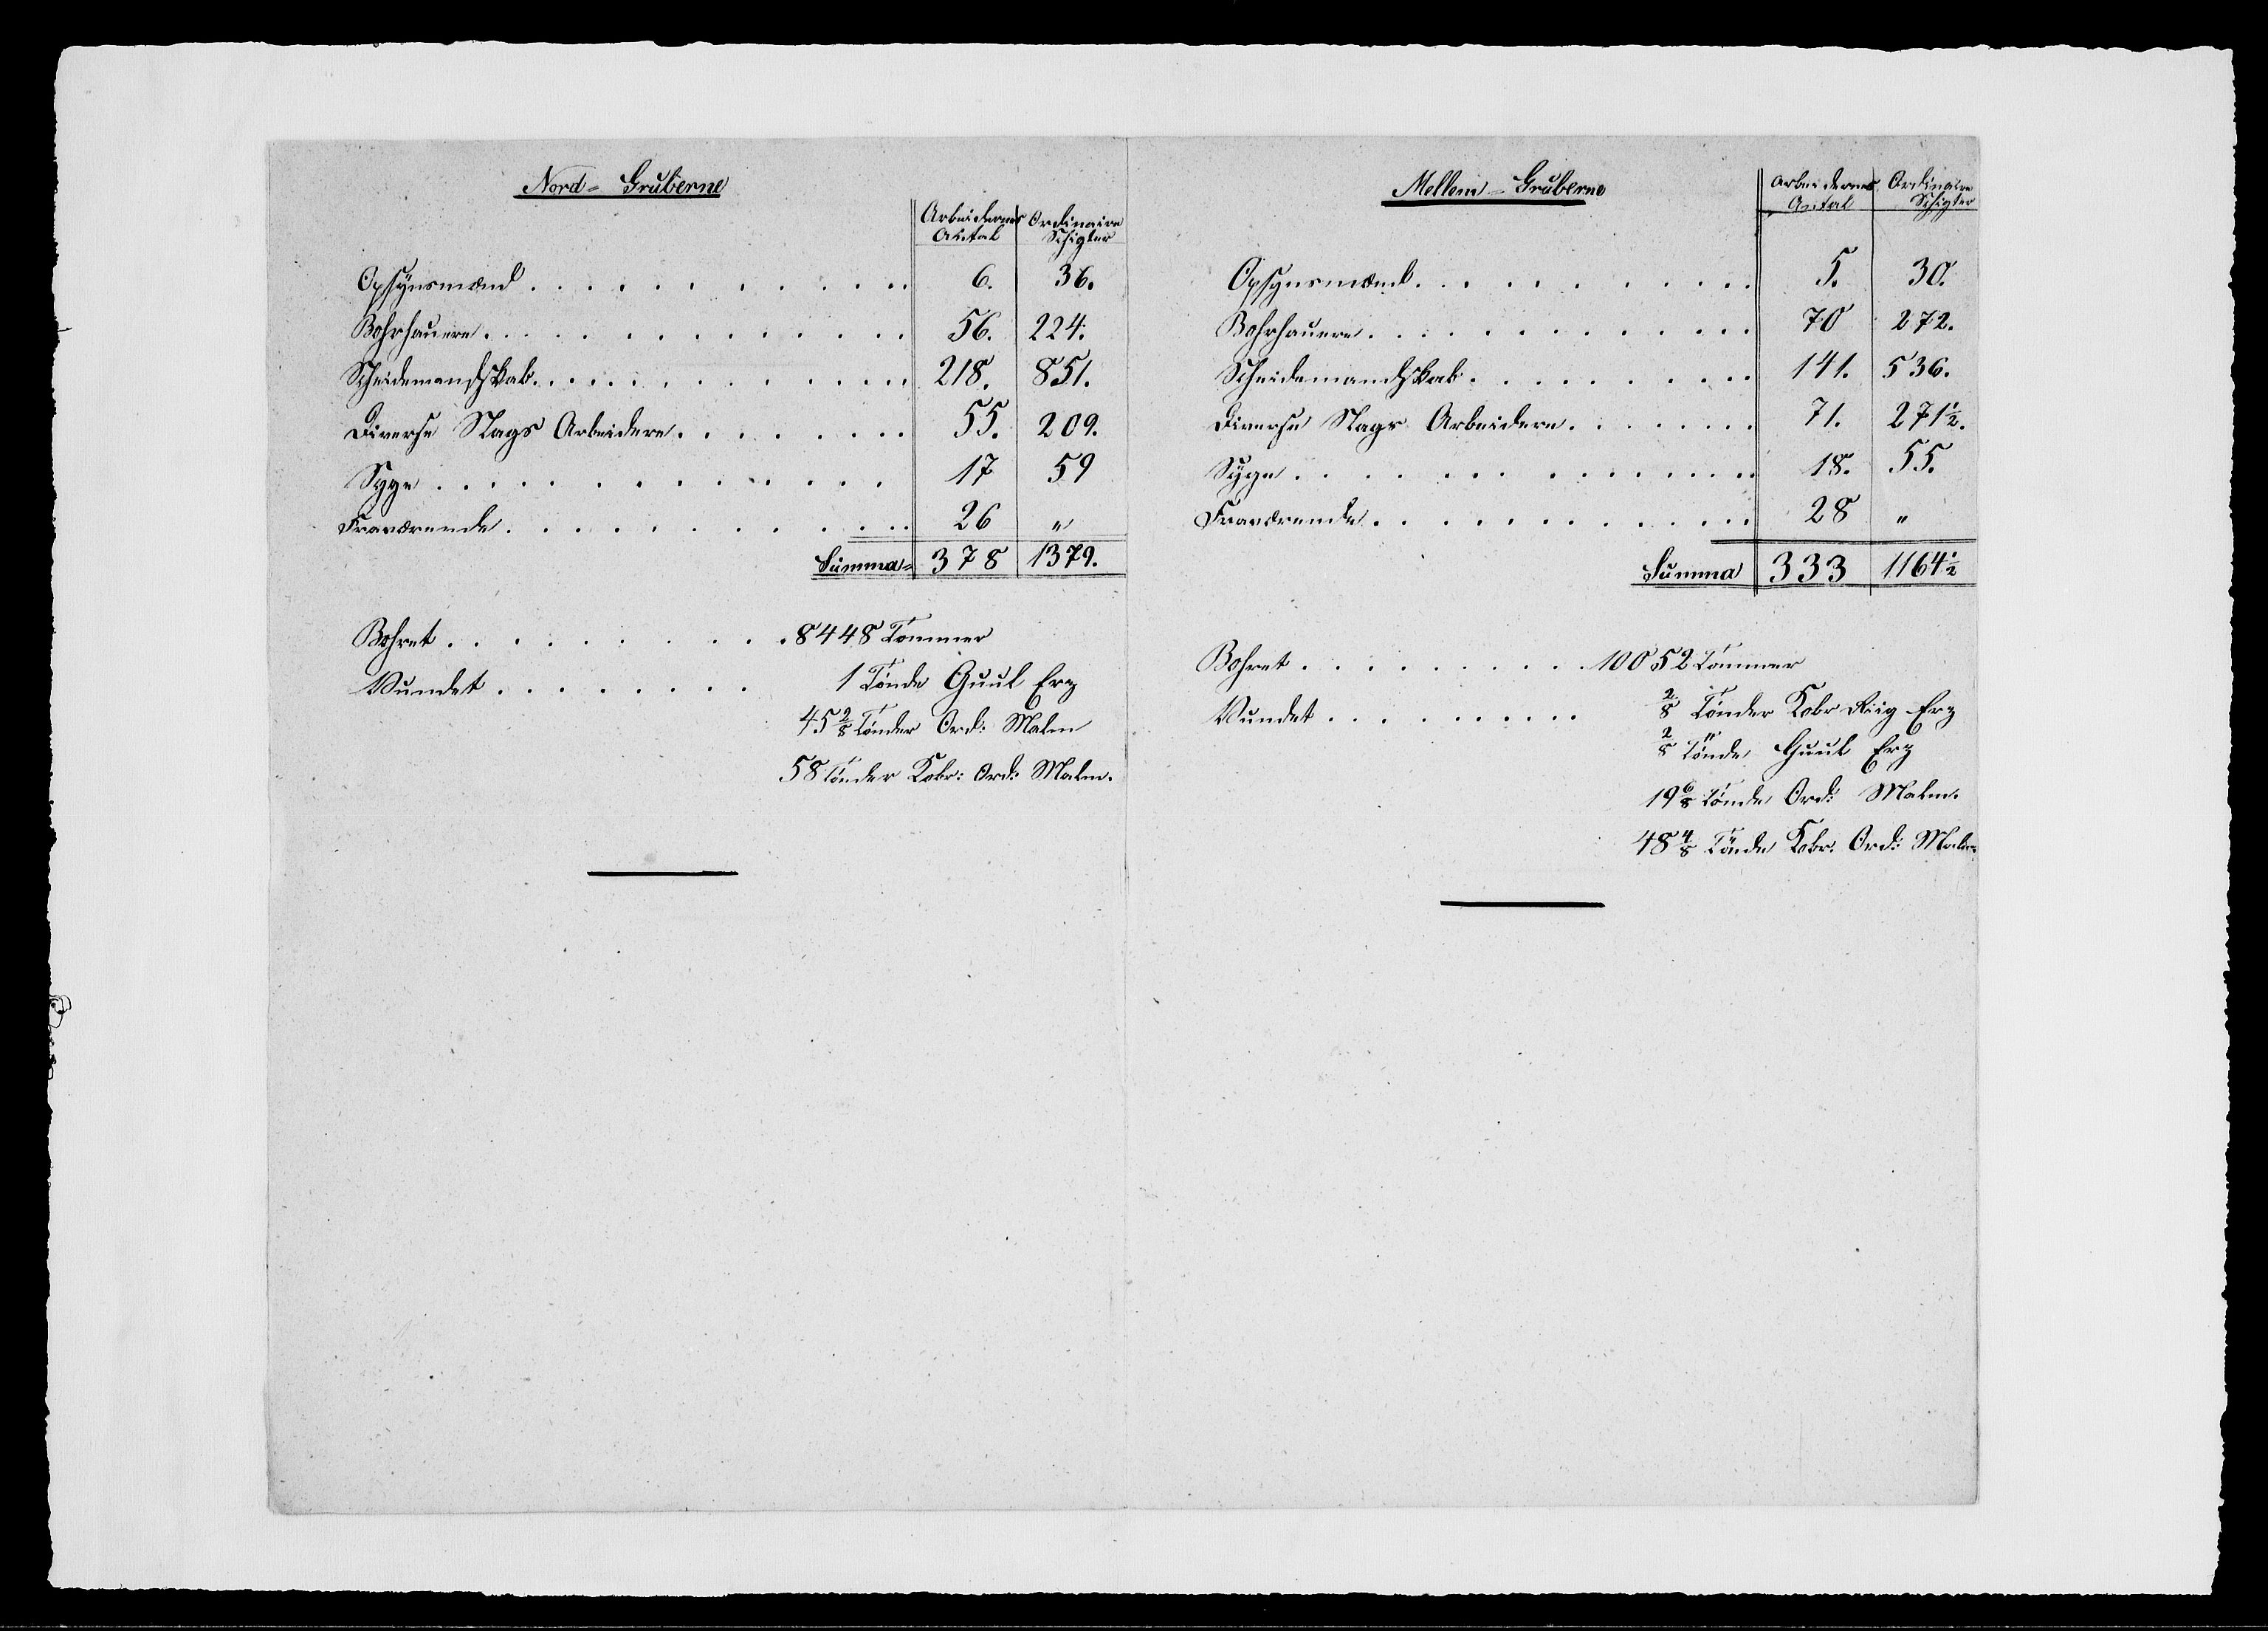 Nord-Gruberne
Arbeidernes Antal | Ordinaire Schigter
Opsynsmænd . . . . . . . . . . 6. 36.
Bohrhauere . . . . . . . . . . 56. 224.
Scheidemandskab . . . . . . . . . . 218. 851.
Diverse Slags Arbeidere . . . . . . . 55. 209.
Syge . . . . . . . . . . 17 59
Fraværende . . . . . . . . . . 26 "
Summa= 378 1379.
Bohret . . . . . . . . . 8448 Tommer
Vundet . . . . . . . 1 Tönde Guul Erz
45 2/8 Tönder Ord: Malm
58 Tönder Kobr: Ord: Malm.
Mellem-Gruberne
Arbeidernes Antal | Ordinaire Schigter
Opsynsmænd . . . . . . . . . . 5. 30.
Bohrhauere . . . . . . . . . . 70 272.
Scheidemandskab . . . . . . . . . 141. 536.
Diverse Slags Arbeidere . . . . . . . 71. 271½.
Syge . . . . . . . . . . 18. 55.
Fraværende . . . . . . . . . . 28 "
Summa 333 1164½
Bohret . . . . . . . . . 10052 Tommer
Vundet . . . . . . . . . 2/8 Tönder Kobr Riig Erz
2/8 Tönde Guul Erz
19 6/8 Tönde Ord: Malm.
48 4/8 Tönde Kobr: Ord: Malm